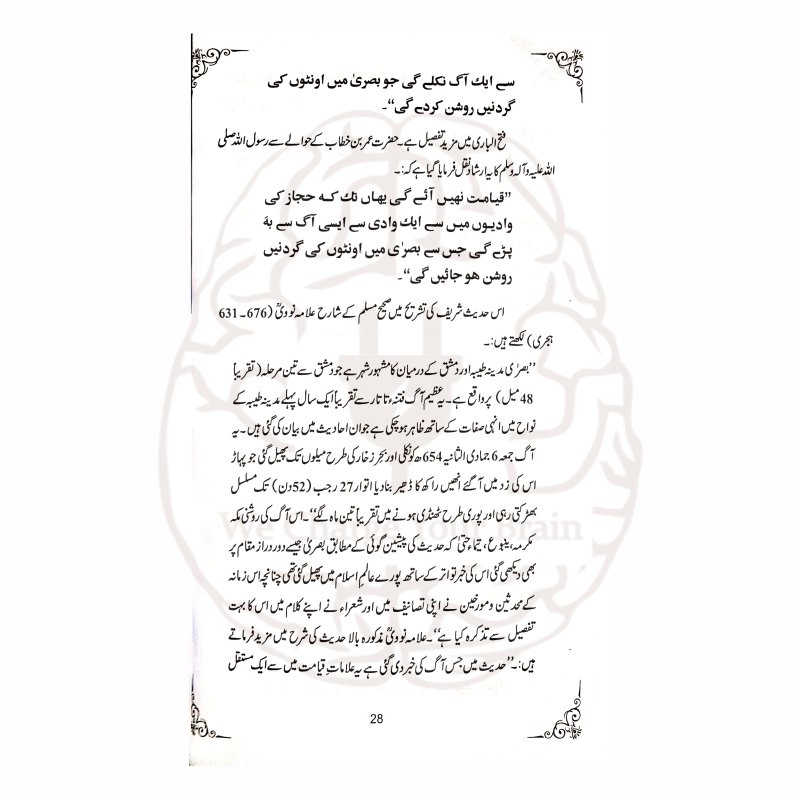 سے ایك آگ نكلے گی جو بصریٰ میں اونٹوں كی
گردنیں روشن كردے گی‘‘۔
فتح الباری میں مزید تفصیل ہے۔ حضرت عمر بن خطاب کے حوالے سے رسول اللہ صلی
اللہ علیہ وآلہ وسلم کا یہ ارشاد نقل فرمایا گیا ہے کہ:۔
’’قیامت نهیں آئے گی یهاں تك كه حجاز كی
وادیوں میں سے ایك وادی سے ایسی آگ سے به
پڑے گی جس سے بصرٰی میں اونٹوں كی گردنیں
روشن هو جائیں گی‘‘۔
اس حدیث شریف کی تشریح میں صحیح مسلم کے شارح علامہ نوویؒ (676۔631
ہجری) لکھتے ہیں:۔
’’بصرٰی مدینہ طیبہ اور دمشق کے درمیان کا مشہور شہر ہے جو دمشق سے تین مرحلہ (تقریباً
48 میل) پر واقع ہے۔ یہ عظیم آگ فتنہء تاتار سے تقریباً ایک سال پہلے مدینہ طیبہ کے
نواح میں انہی صفات کے ساتھ ظاہر ہوچکی ہے جو ان احادیث میں بیان کی گئی ہیں۔ یہ
آگ جمعہ 6 جمادی الثانیہ 654ھ کو نکلی اور بحرِ زخار کی طرح میلوں تک پھیل گئی جو پہاڑ
اس کی زد میں آگئے انھیں راکھ کا ڈھیر بنادیا اتوار 27 رجب (52 دن) تک مسلسل
بھڑکتی رہی اور پوری طرح ٹھنڈی ہونے میں تقریباً تین ماہ لگے‘‘۔ اس آگ کی روشنی مکہ
مکرمہ، ینبوع، تیماء حتیٰ کہ حدیث کی پیشین گوئی کے مطابق بصریٰ جیسے دور دراز مقام پر
بھی دیکھی گئی اس کی خبر تواتر کے ساتھ پورے عالمِ اسلام میں پھیل گئی تھی چنانچہ اس زمانہ
کے محدثین و مورخین نے اپنی تصانیف میں اور شعراء نے اپنے کلام میں اس کا بہت
تفصیل سے تذکرہ کیا ہے‘‘۔ علامہ نوویؒ مذکورہ بالا حدیث کی شرح میں مزید فرماتے
ہیں:۔ ’’حدیث میں جس آگ کی خبر دی گئی ہے یہ علاماتِ قیامت میں سے ایک مستقل
28